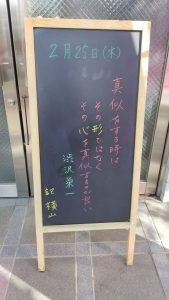 2月25日(木)
真似をする時は
その形ではなく
その心を真似するのが良い
渋沢栄一
記 横山